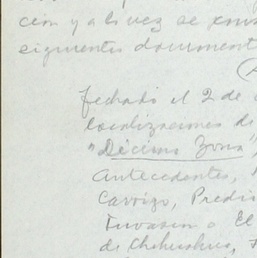 ción y a la vez se cons
siguientes document
fechado el 2 de
localizaciones de
"Décima Zona",
Antecedentes,
Carrizo, Predio
Invasión a El
de Chihuahua,